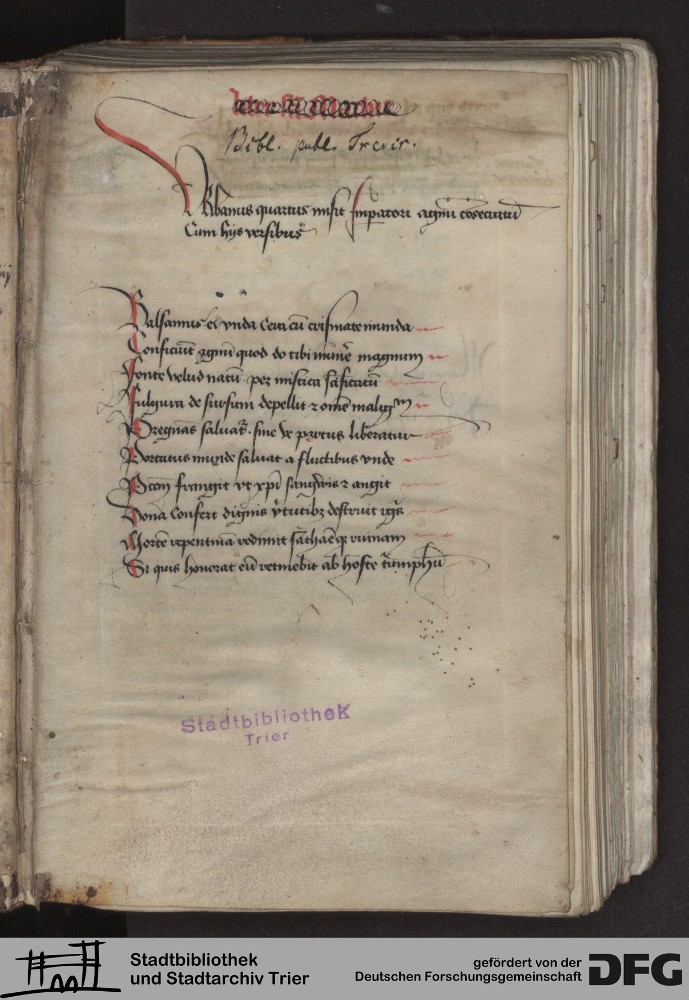 Bibl. publ. Trevir.
Urbanus quartus misit Imperatori agnũ cõsecratũ
Cum hijs versibus
Balsamus et vnda cera cũ crismate munda
Conficiunt agnũ quod do tibi munẽ magnum
Fonte velud natũ per mistica sc̃ificatũ
Fulgura de sursum depellit ⁊ om̃e malignũ
Pregnãs saluat̃ sine ve partus liberatur
Portatus munde saluat a fluctibus vnde
Pctm̃ frangit vt xpĩ sangwis ⁊ angit
Dona confert dignis v̾tutibꝫ destruit ignis
Morte repentina redimit sathaneqꝫ ruinam
Si quis honorat eũ retinebit ab hoste triumphũ
Stadtbibliothek
Trier
Stadtbibliothek
und Stadtarchiv Trier
gefördert von der
Deutschen Forschungsgemeinschaft
DFG